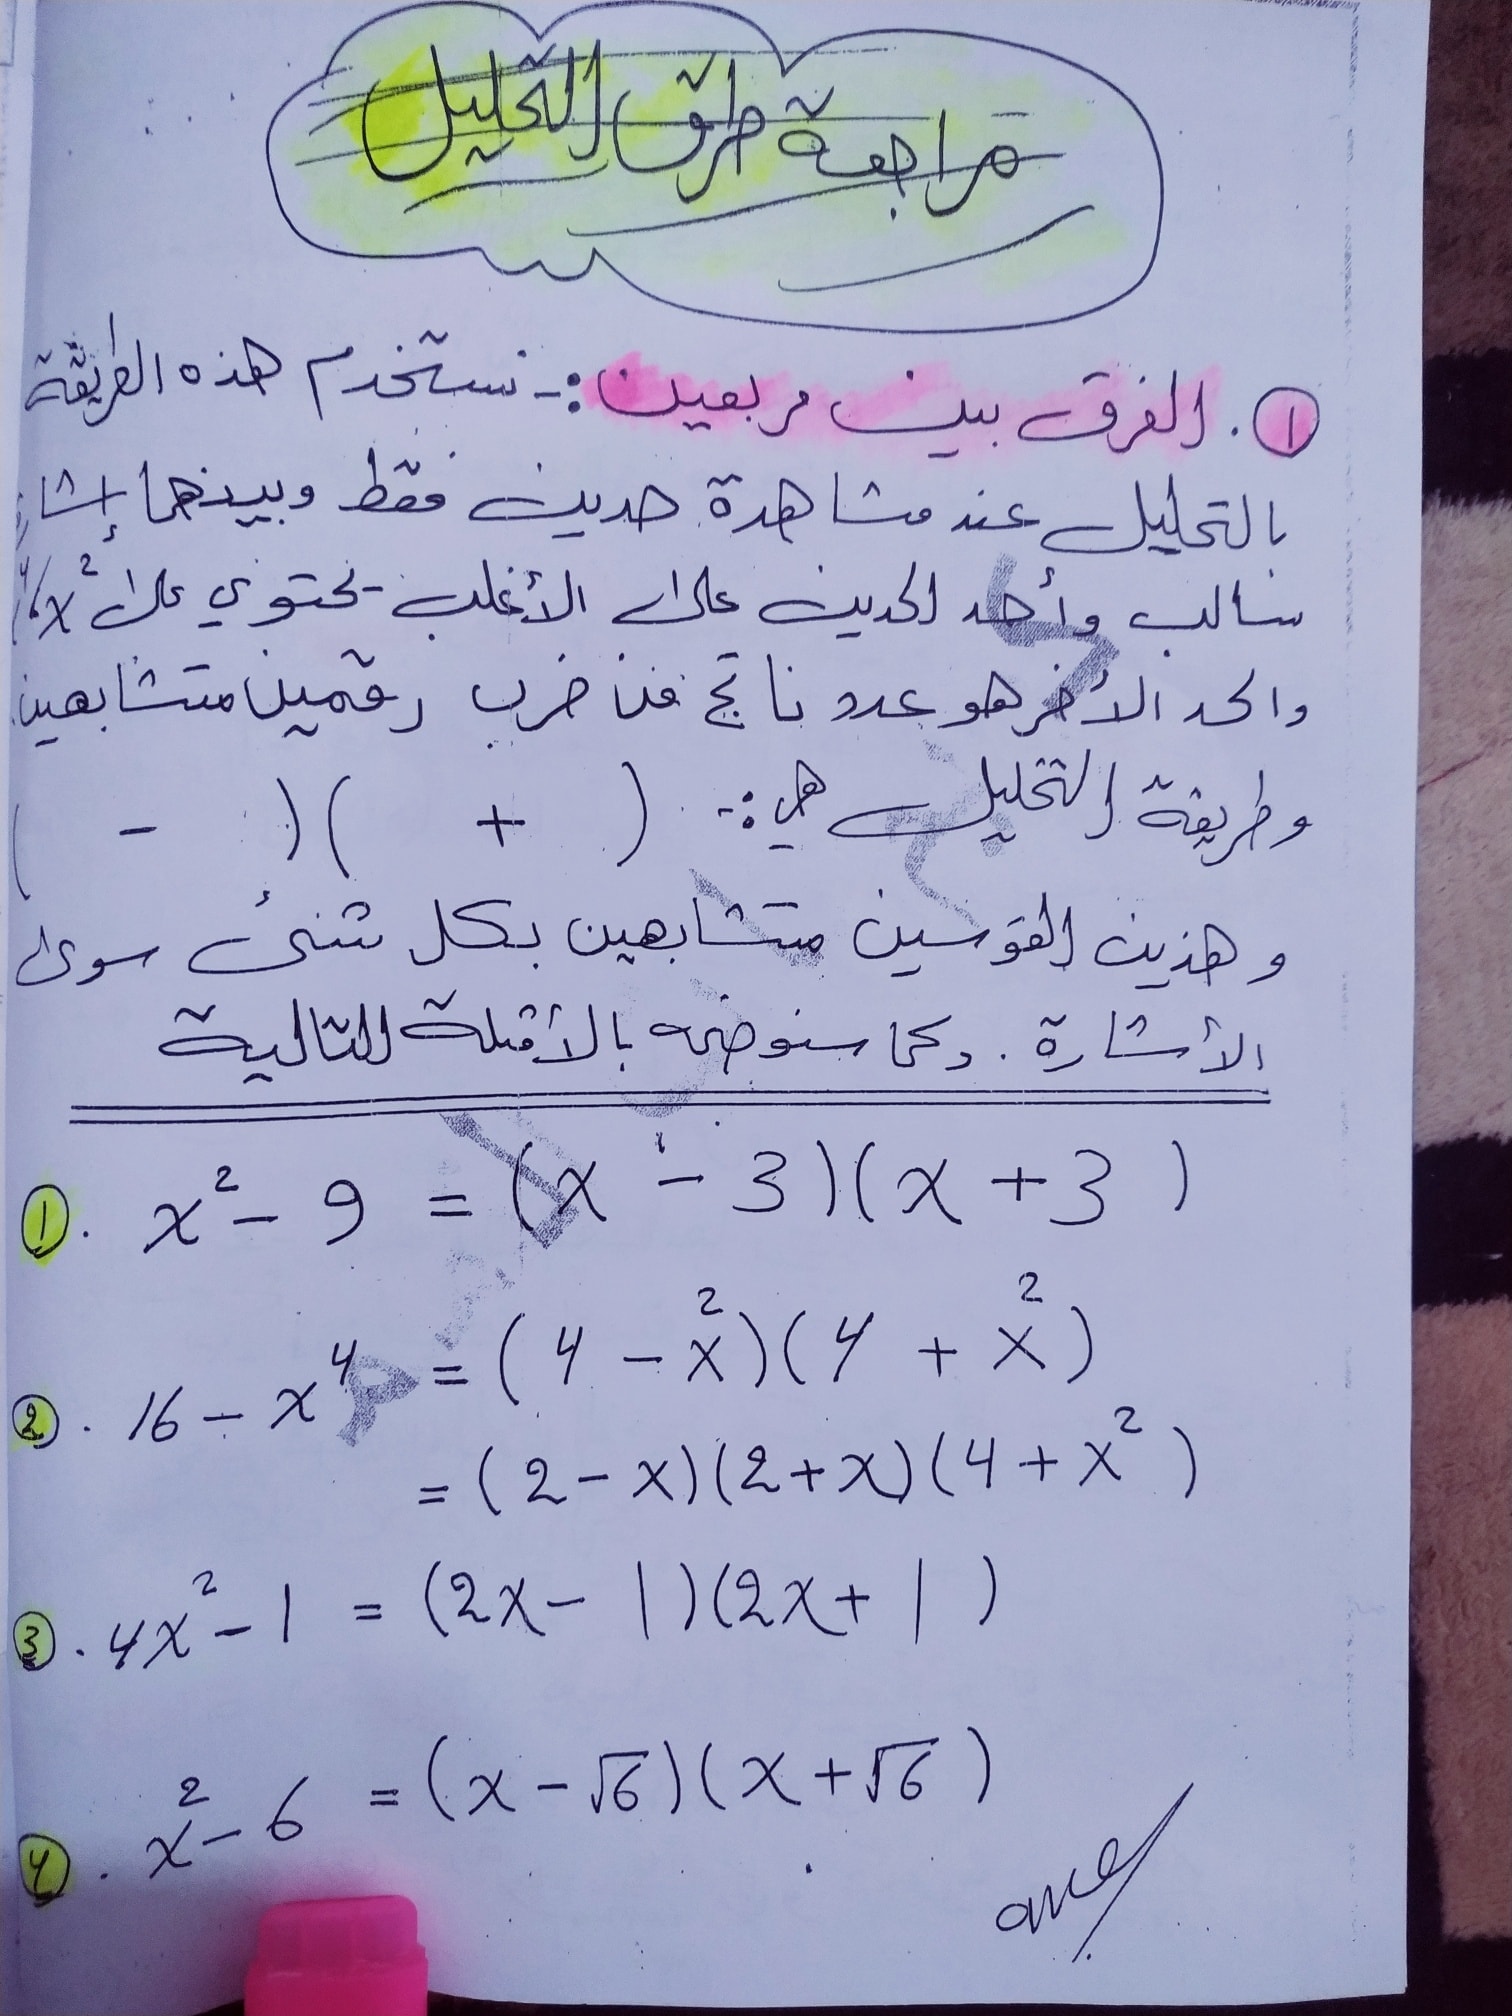 مراجعة طرق التحليل
①. الفرق بين مربعين :- نستخدم هذه الطريقة
بالتحليل عند مشاهدة حدين فقط وبينهما إشارة
سالب وأحد الحدين على الأغلب يحتوي على x²
والحد الأخر هو عدد ناتج من ضرب رقمين متشابهين
وطريقة التحليل هي :- (   +   )(   -   )
وهذين القوسين متشابهين بكل شئ سوى
الأشارة . وكما سنوضحه بالأمثلة التالية
①. x² - 9 = (x - 3)(x + 3)
②. 16 - x⁴ = (4 - x²)(4 + x²)
= (2 - x)(2 + x)(4 + x²)
③. 4x² - 1 = (2x - 1)(2x + 1)
④. x² - 6 = (x - √6)(x + √6)